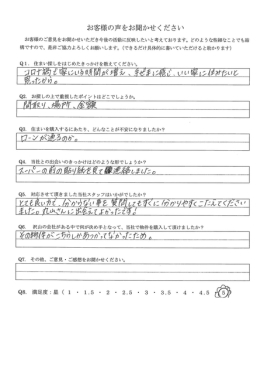 お客様の声をお聞かせください
お客様のご意見をお聞かせいただき今後の活動に反映したいと考えております。どのような些細なことでも結
構ですので、是非ご協力よろしくお願いします。(できるだけ具体的に書いていただけると助かります)
Q1. 住まい探しをはじめたきっかけを教えてください。
コロナ禍で家にいる時間が増え、
いい家に住みたいと
思ったから。
Q2. お探しの上で重視したポイントはどこでしょうか。
間取り、場所、金額
Q3. 住まいを購入するにあたり、どんなことが不安になりましたか?
ローンが通るのか。
Q4. 当社との出会いのきっかけはどのような形でしょうか?
スーパーの前の貼り紙を見て連絡しました。
Q5. 対応させて頂きました当社スタッフはいかがでしたか?
とても良い方で、分からない事を質問してもすぐに分かりやすくこたえてくれ
ました。丸山さんに出会えてよかったです!
Q6. 沢山の会社がある中で何が決め手となって、当社で物件を購入して頂けましたか?
その物件がこちらしかあつかってなかったため。
Q7. その他、ご意見・ご感想をお聞かせください。
Q8. 満足度:星(1・1.5・2・2.5・3・3.5・4・4.5・5)